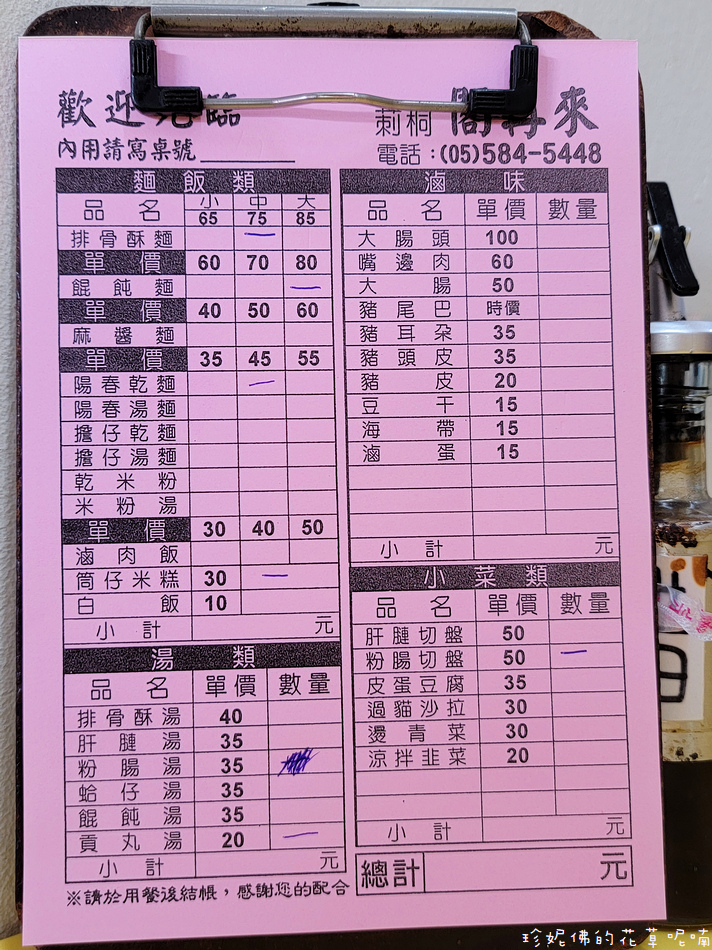 歡迎光臨
內用請寫桌號
刺桐 閤再來
電話：(05)584-5448
麵飯類
品名 小 中 大
65 75 85
排骨酥麵 一
單價 60 70 80
餛飩麵 一
單價 40 50 60
麻醬麵
單價 35 45 55
陽春乾麵 一
陽春湯麵
擔仔乾麵
擔仔湯麵
乾米粉
米粉湯
單價 30 40 50
滷肉飯
筒仔米糕 30 一
白飯 10
小計 元
湯類
品名 單價 數量
排骨酥湯 40
肝腱湯 35
粉腸湯 35
蛤仔湯 35
餛飩湯 35
貢丸湯 20 一
小計 元
※請於用餐後結帳，感謝您的配合
滷味
品名 單價 數量
大腸頭 100
嘴邊肉 60
大腸 50
豬尾巴 時價
豬耳朵 35
豬頭皮 35
豬皮 20
豆干 15
海帶 15
滷蛋 15
小計 元
小菜類
品名 單價 數量
肝腱切盤 50
粉腸切盤 50 一
皮蛋豆腐 35
過貓沙拉 30
燙青菜 30
涼拌韭菜 20
小計 元
總計 元
珍妮佛的花草呢喃